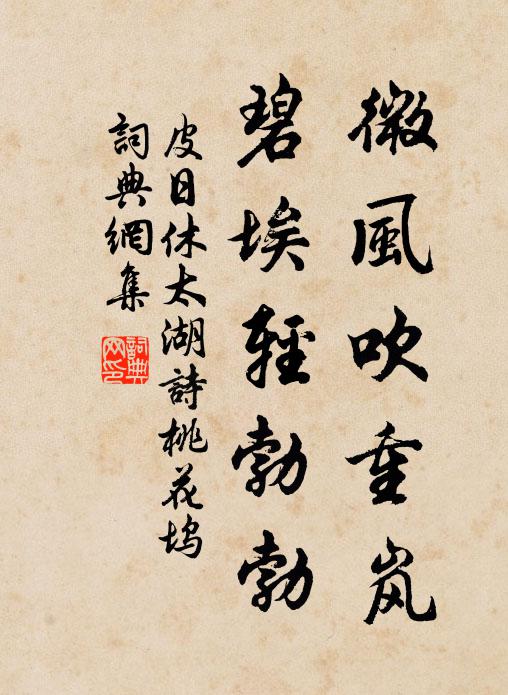 微風吹重岚
碧埃輕勃勃
皮日休太湖詩桃花塢
詞典網集
詞典网印